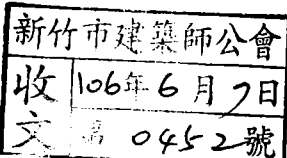 新竹市建築師公會
收文
106年6月7日
第0452號